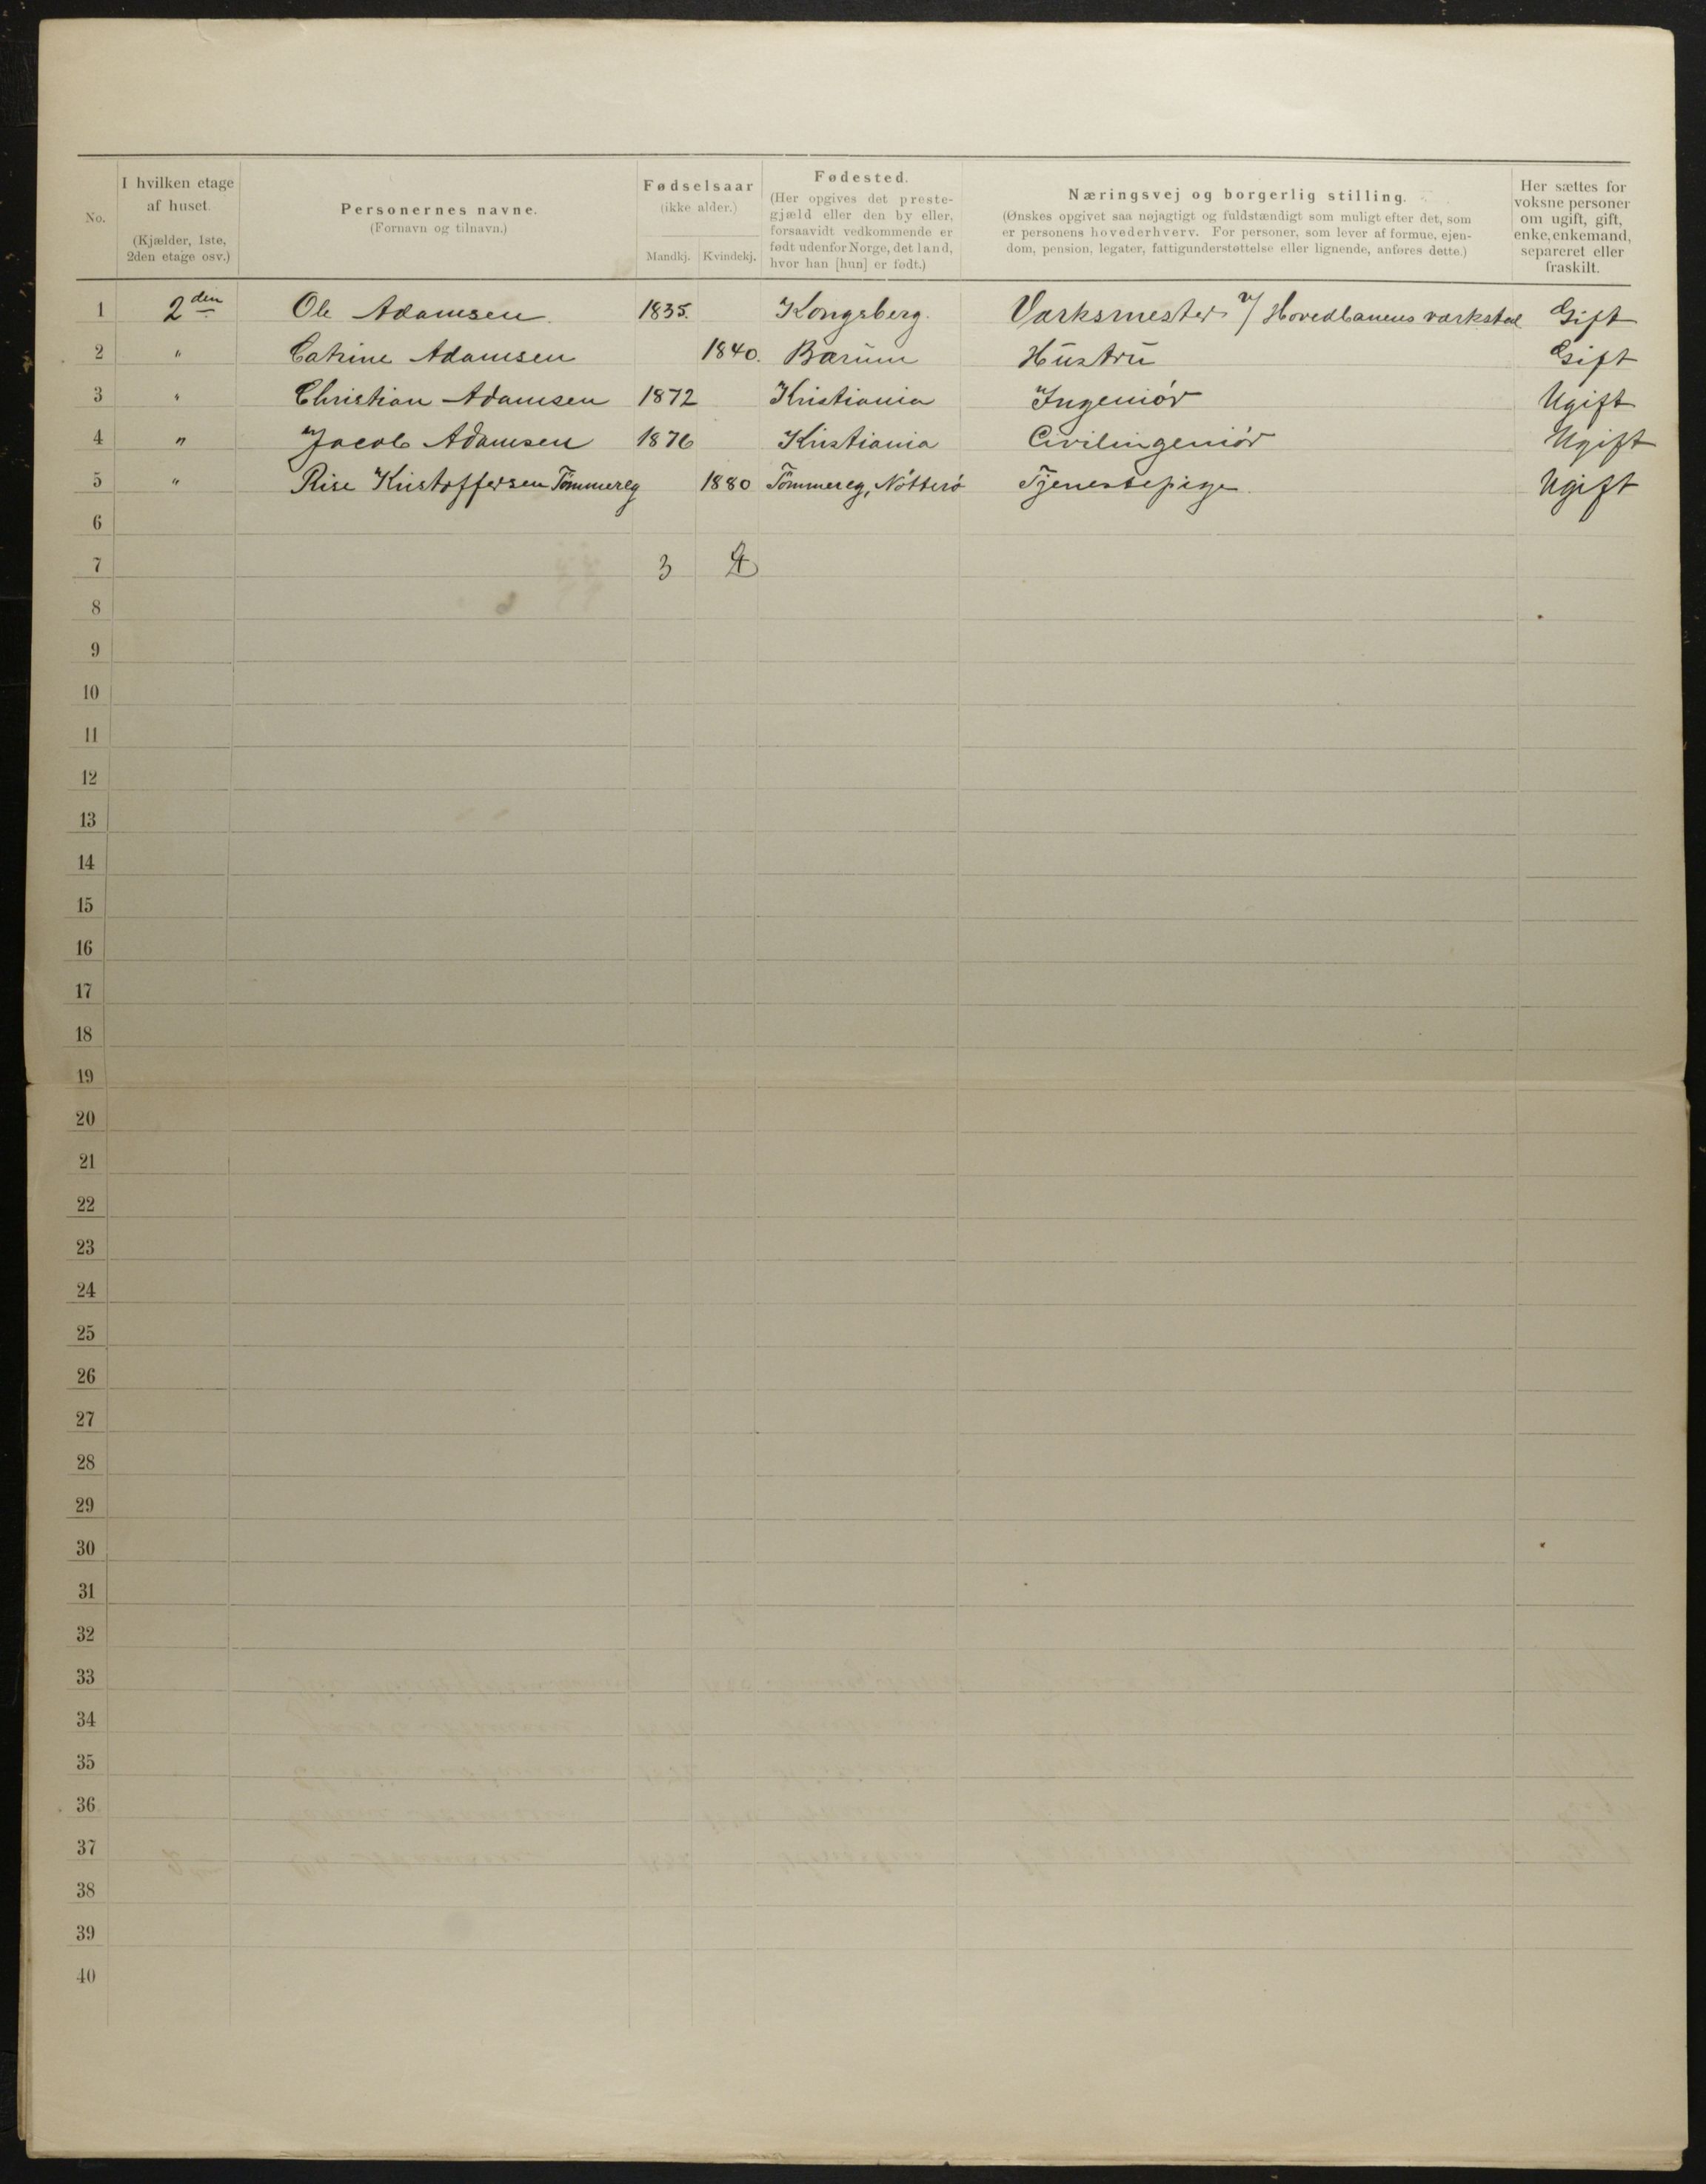 No.
I hvilken etage af huset.
(Kjælder, 1ste, 2den etage osv.)
Personernes navne.
(Fornavn og tilnavn.)
Fødselsaar
(ikke alder.)
Mandkj. Kvindekj.
Fødested.
(Her opgives det prestegjæld eller den by eller, forsaavidt vedkommende er født udenfor Norge, det land, hvor han [hun] er født.)
Næringsvej og borgerlig stilling.
(Ønskes opgivet saa nøjagtigt og fuldstændigt som muligt efter det, som er personens hovederhverv. For personer, som lever af formue, ejendom, pension, legater, fattigunderstøttelse eller lignende, anføres dette.)
Her sættes for voksne personer om ugift, gift, enke, enkemand, separeret eller fraskilt.
1 2den Ole Adamsen. 1835. Kongsberg. Værksmester v/ Hovedbanens værksted Gift
2 " Catrine Adamsen 1840. Bærum Hustru Gift
3 " Christian Adamsen 1872 Kristiania Ingeniør Ugift
4 " Jacob Adamsen 1876 Kristiania Civilingeniør Ugift
5 " Kristoffersen Tømmereg 1880 Tømmereg, Nøtterø Tjenestepige. Ugift
6
7 3
8
9
10
11
12
13
14
15
16
17
18
19
20
21
22
23
24
25
26
27
28
29
30
31
32
33
34
35
36
37
38
39
40